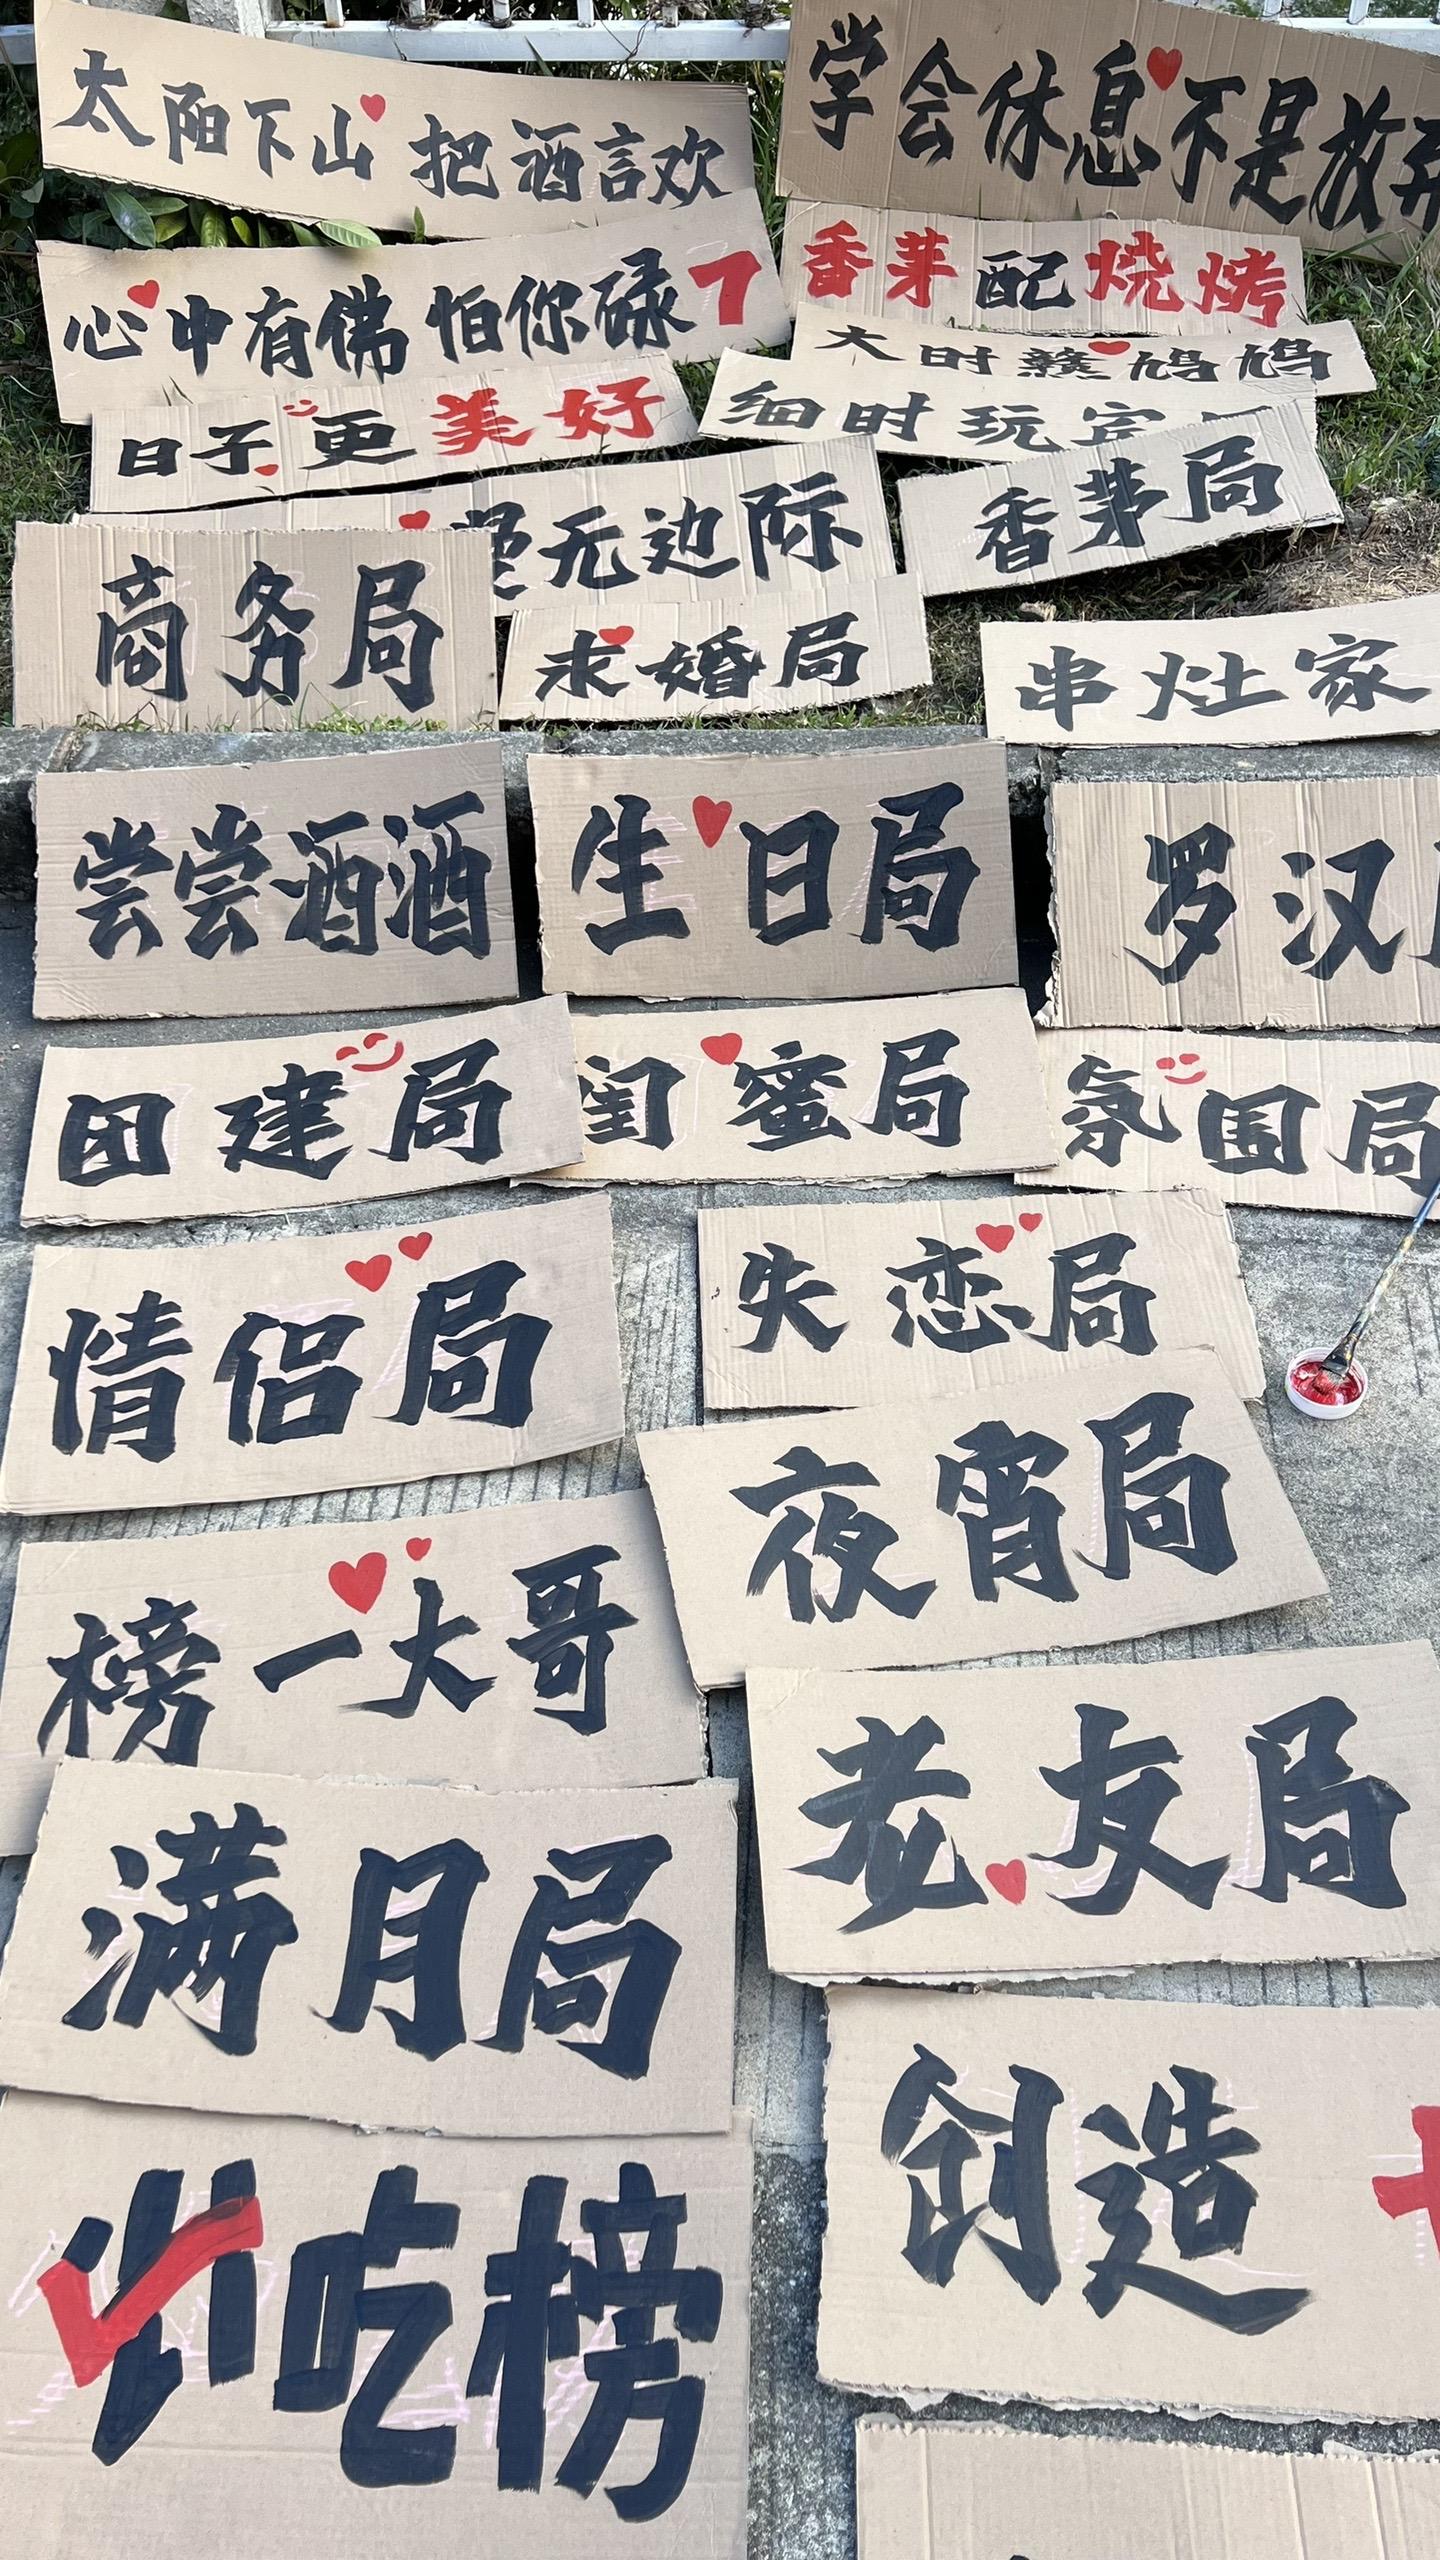 太阳下山 把酒言欢
学会休息不是放弃
心中有佛 怕你碌7
香茅配烧烤
大时赣鸠鸠
日子更美好
细时玩
无边际
香茅局
商务局
求婚局
串灶家
尝尝酒酒
生日局
罗汉
团建局
闺蜜局
氛围局
情侣局
失恋局
夜宵局
榜一大哥
老友局
满月局
创造
吃榜